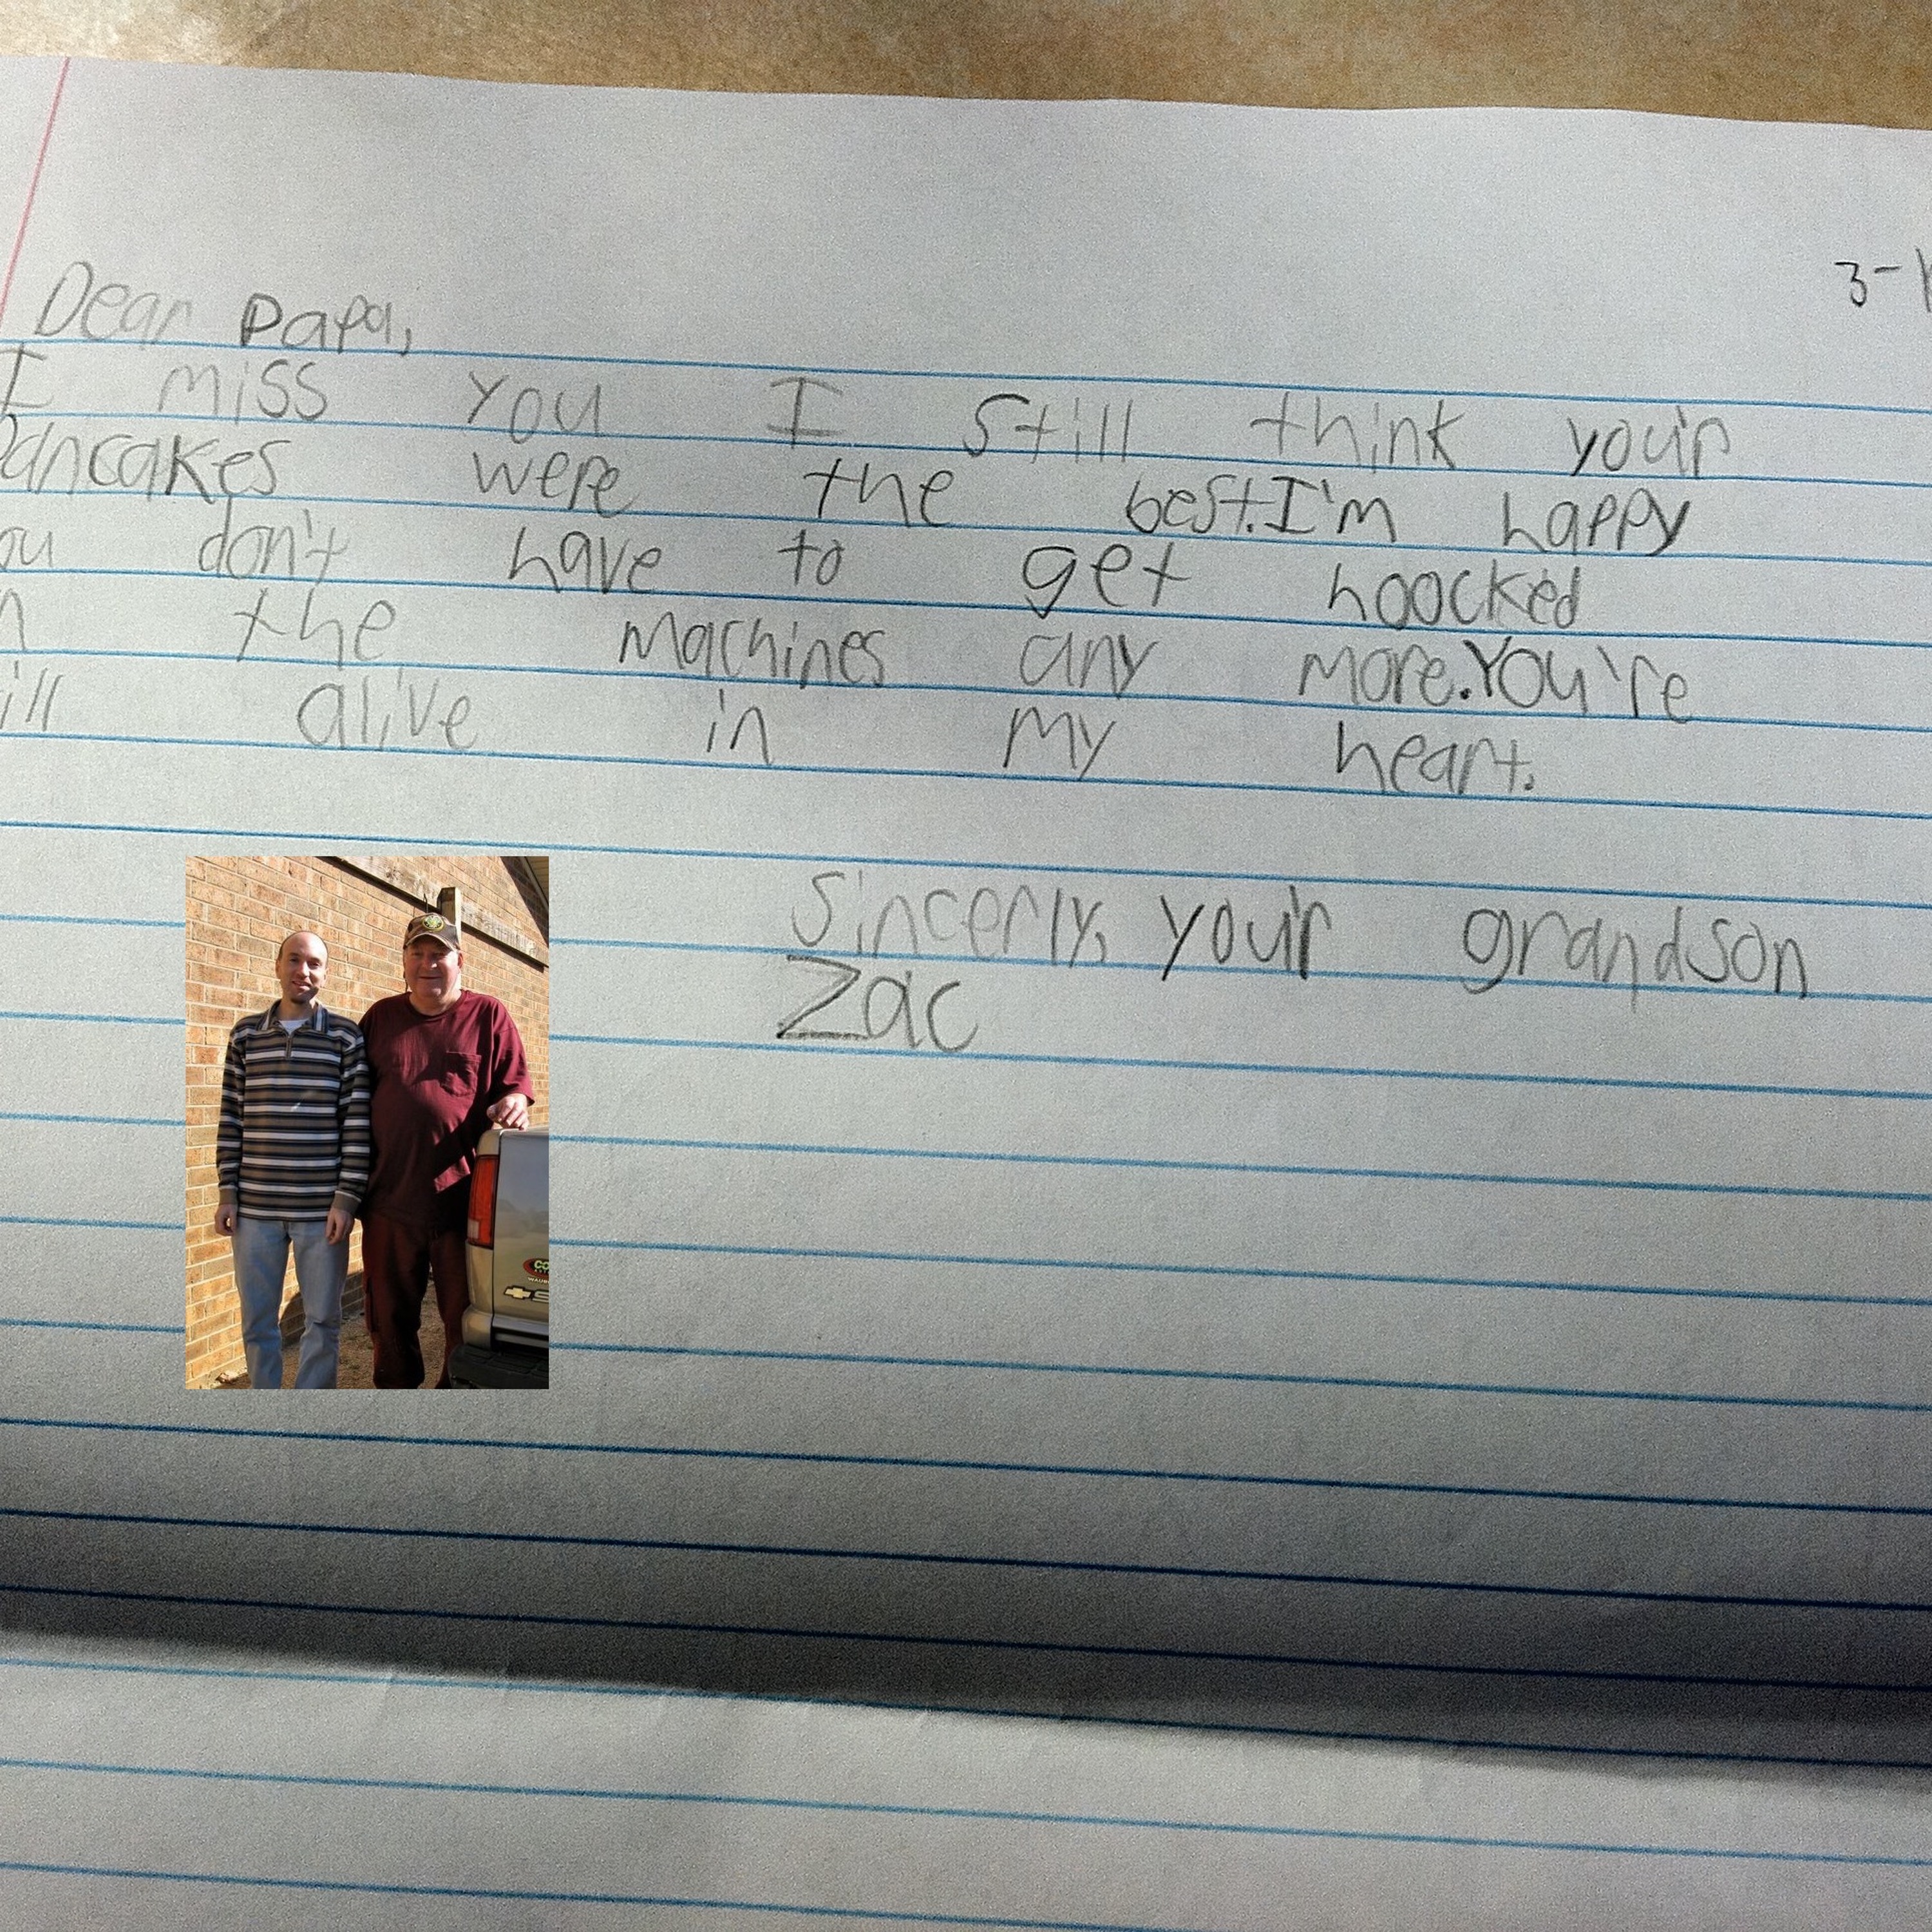 3-
Dear papa,
I miss you I still think you'r
Pancakes were the best.I'm happy
ou don't have to get hoocked
n the machines any more.YOU're
ill alive in my heart.
Sincerly, you'r grandson
Zac